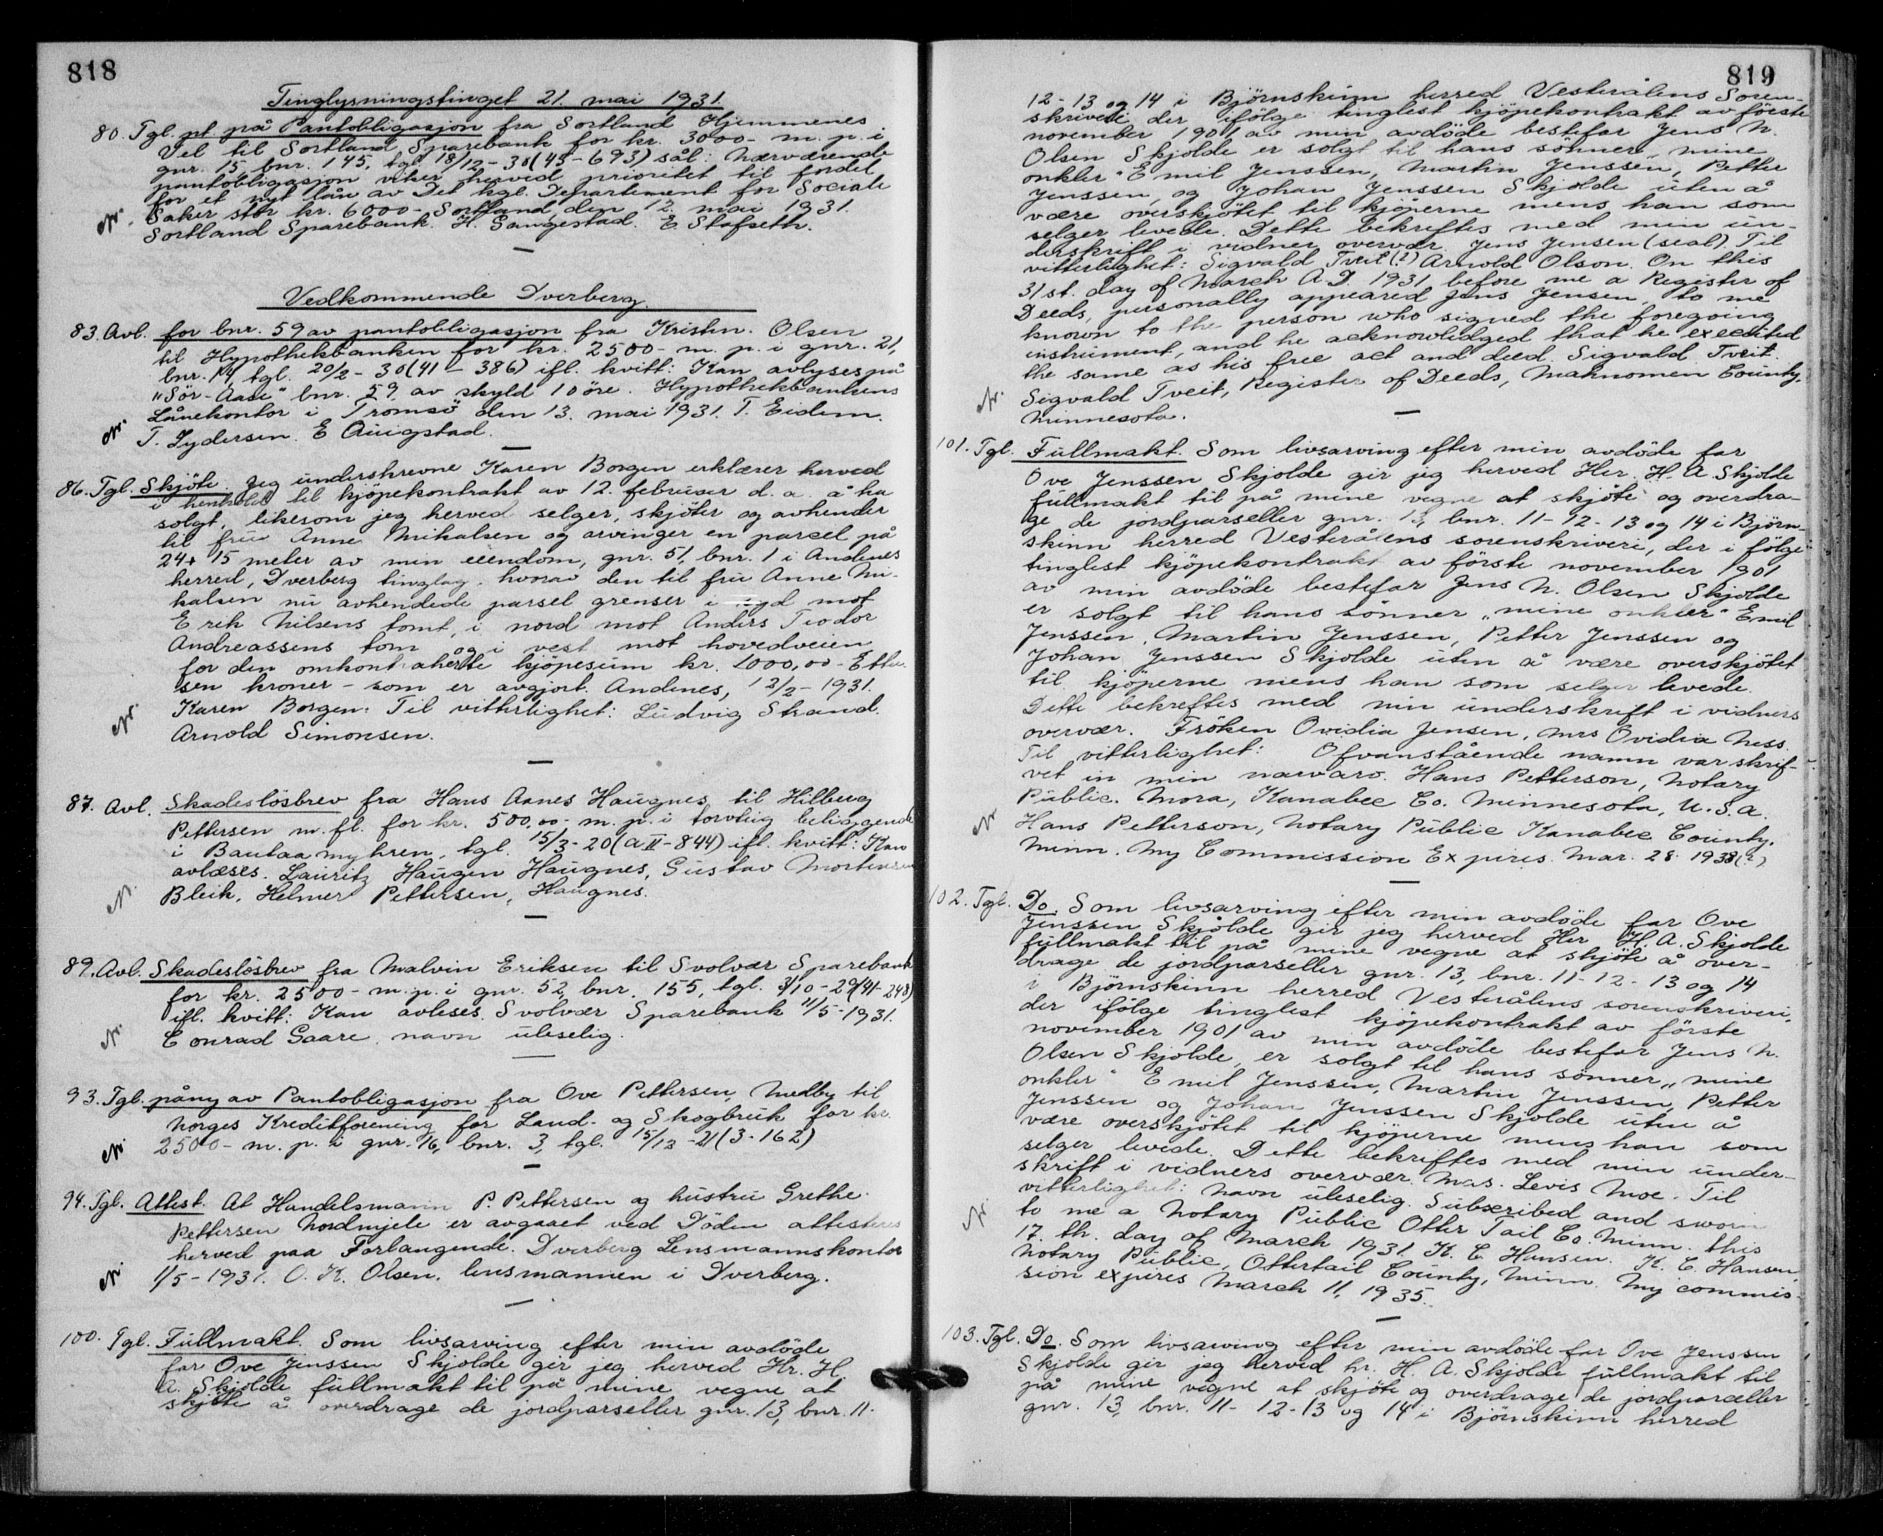 818
Tinglysningstinget 21. mai 1931.
80. Tgl. pt. på Pantobligasjon fra Sortland Hjemmenes
Vel til Sortland Sparebank for kr. 3000- m. p. i
gnr. 15, bnr. 145, tgl. 18/12-30 (43-693) sål: Nærværende
pantobligasjon viker herved prioritet til fordel
for et nytt lån av Det kgl. Departement for Sociale
Saker stor kr. 6000- Sortland, den 12. mai 1931.
Sortland Sparebank. H. Gangestad. E. Stafseth.
Vedkommende Dverberg.
83. Avl. for bnr. 59 av pantobligasjon fra Kristn. Olsen
til Hypothekbanken for kr. 2500- m. p. i gnr. 21,
bnr. 14, tgl. 20/2-30 (41-386) ifl. kvitt: Kan avlyses på
"Sör-Aase" bnr. 59 av skyld 10 öre. Hypothekbankens
Lånekontor i Tromsö den 13. mai 1931. T. Eidem.
T. Lydersen. E Augstad.
86. Tgl. Skjöte. Jeg underskrevne Karen Borgen erklærer herved
i henhold til kjöpekontrakt av 12. februar d. a. å ha
solgt, likesom jeg herved selger, skjöter og avhender
til frue Anne Mikalsen og arvinger en parsel på
24+15 meter av min eiendom, gnr. 51, bnr. 1 i Andenes
herred, Dverberg tinglag, hvorav den til frue Anne Mi-
kalsen nu avhendede parsel grenser i syd mot
Erik Nilsens tomt, i nord mot Anders Tiodor
Andreassens tom og i vest mot hovedveien
for den omkontraherte kjöpesum kr. 1000,00- Ettu-
sen kroner - som er avgjort. Andenes, 12/2-1931.
Karen Borgen. Til vitterlighet: Ludvig Strand.
Arnold Simonsen.
87. Avl. Skadeslösbrev fra Hans Aanes Haugnes til Hilberg
Pettersen m. fl. for kr. 500,00- m. p. i torvteig beliggende
i Bautaamyhren, tgl. 15/3-20 (A II-844) ifl. kvitt: Kan
avlæses. Lauritz Haugen Haugnes, Gustav Mortensen
Bleik, Helmer Pettersen, Haugnes.
89. Avl. Skadeslösbrev fra Malvin Eriksen til Svolvær Sparebank
for kr. 2500- m. p. i gnr. 52, bnr. 155, tgl. 3/10-29 (41-248)
ifl. kvitt: Kan avleses. Svolvær Sparebank 11/5-1931.
Conrad Gaare. navn uleselig.
93. Tgl. påny av Pantobligasjon fra Ove Pettersen, Medby til
Norges Kreditforening for Land- og Skogbruk for kr.
2500- m. p. i gnr. 16, bnr. 3, tgl. 15/12-21 (3-162)
94. Tgl. Attest. At Handelsmann P. Pettersen og hustru Grethe
Pettersen Nordmjele er avgaaet ved Döden attesteres
herved paa Forlangende. Dverberg Lensmannskontor
1/5-1931. O. K. Olsen. lensmannen i Dverberg.
100. Tgl. Fullmakt. Som livsarving efter min avdöde
far Ove Jenssen Skjolde gir jeg herved Hr. H.
A. Skjolde fullmakt til på mine vegne at
skjöte å overdrage de jordparseller gnr. 13, bnr. 11-
819
12-13 og 14 i Björnskinn herred Vesterålens Soren-
skriveri der ifölge tinglest kjöpekontrakt av förste
november 1901 av min avdöde bestefar Jens N.
Olsen Skjolde er solgt til hans sönner "mine
onkler" Emil Jenssen, Martin Jenssen, Petter
Jenssen, og Johan Jenssen Skjolde uten å
være overskjötet til kjöperne mens han som
selger levede. Dette bekreftes med min un-
derskrift i vidner overvær. Jens Jensen (seal). Til
vitterlighet: Sigvald Tveit (?) Arnold Olson. On this
31st. day of March A.D. 1931 before me a Register of
Deeds, personally appeared Jens Jensen, to me
known to the person who signed the foregoing
instrument, and he acknowledged that he executed
the same as his free act and deed. Sigvald Tveit.
Sigvald Tveit, Register of Deeds, Mahnomen County,
Minnesota.
101. Tgl. Fullmakt. Som livsarving efter min avdöde far
Ove Jenssen Skjolde gir jeg herved Her. H. A. Skjolde
fullmakt til på mine vegne at skjöte og overdra-
ge de jordparseller gnr. 13, bnr. 11-12-13 og 14 i Björn-
skinn herred Vesterålens sorenskriveri, der i fölge
tinglest kjöpekontrakt av förste november 1901
av min avdöde bestefar Jens N. Olsen Skjolde
er solgt til hans sönner "mine onkler" Emil
Jenssen, Martin Jenssen, Petter Jenssen og
Johan Jenssen Skjolde uten å være overskjötet
til kjöperne mens han som selger levede.
Dette bekreftes med min underskrift i vidners
overvær. Fröken Ovidia Jensen, Mrs Ovidia Ness.
Til vitterlighet: Ofvanstående namn var skrif-
vet in min narvaro. Hans Petterson, Notary
Public. Mora, Kanabec Co. Minnesota, U.S.A.
Hans Petterson, Notary Public Kanabec County,
Minn. My Commission Expires. Mar. 28. 1938 (?)
102. Tgl. Do. Som livsarving efter min avdöde far Ove
Jenssen Skjolde gir jeg herved Her H. A. Skjolde
fullmakt til på mine vegne at skjöte å over-
drage de jordparseller gnr. 13, bnr. 11-12-13 og 14
i Björnskinn herred Vesterålens sorenskriveri,
der ifölge tinglest kjöpekontrakt av förste
november 1901 av min avdöde bestefar Jens N.
Olsen Skjolde, er solgt til hans sönner "mine
onkler" Emil Jenssen, Martin Jenssen, Petter
Jenssen og Johan Jenssen Skjolde uten å
være overskjötet til kjöperne mens han som
selger levede. Dette bekreftes med min under-
skrift i vidners overvær. Mas. Levis Moe. Til
vitterlighet: Navn uleselig. Subscribed and sworn
to me a Notary Public Otter Tail Co. Minn. this
17. th. day of March 1931. K. C. Hansen. K. C. Hansen,
Notary Public, Ottertail County, Minn. My commis-
sion expires March 11, 1935.
103. Tgl. Do. Som livsarving efter min avdöde far Ove Jenssen
Skjolde gir jeg herved hr. H. A. Skjolde fullmakt til
på mine vegne at skjöte og overdrage de jordparceller
gnr. 13, bnr. 11-12-13 og 14 i Björnskinn herred